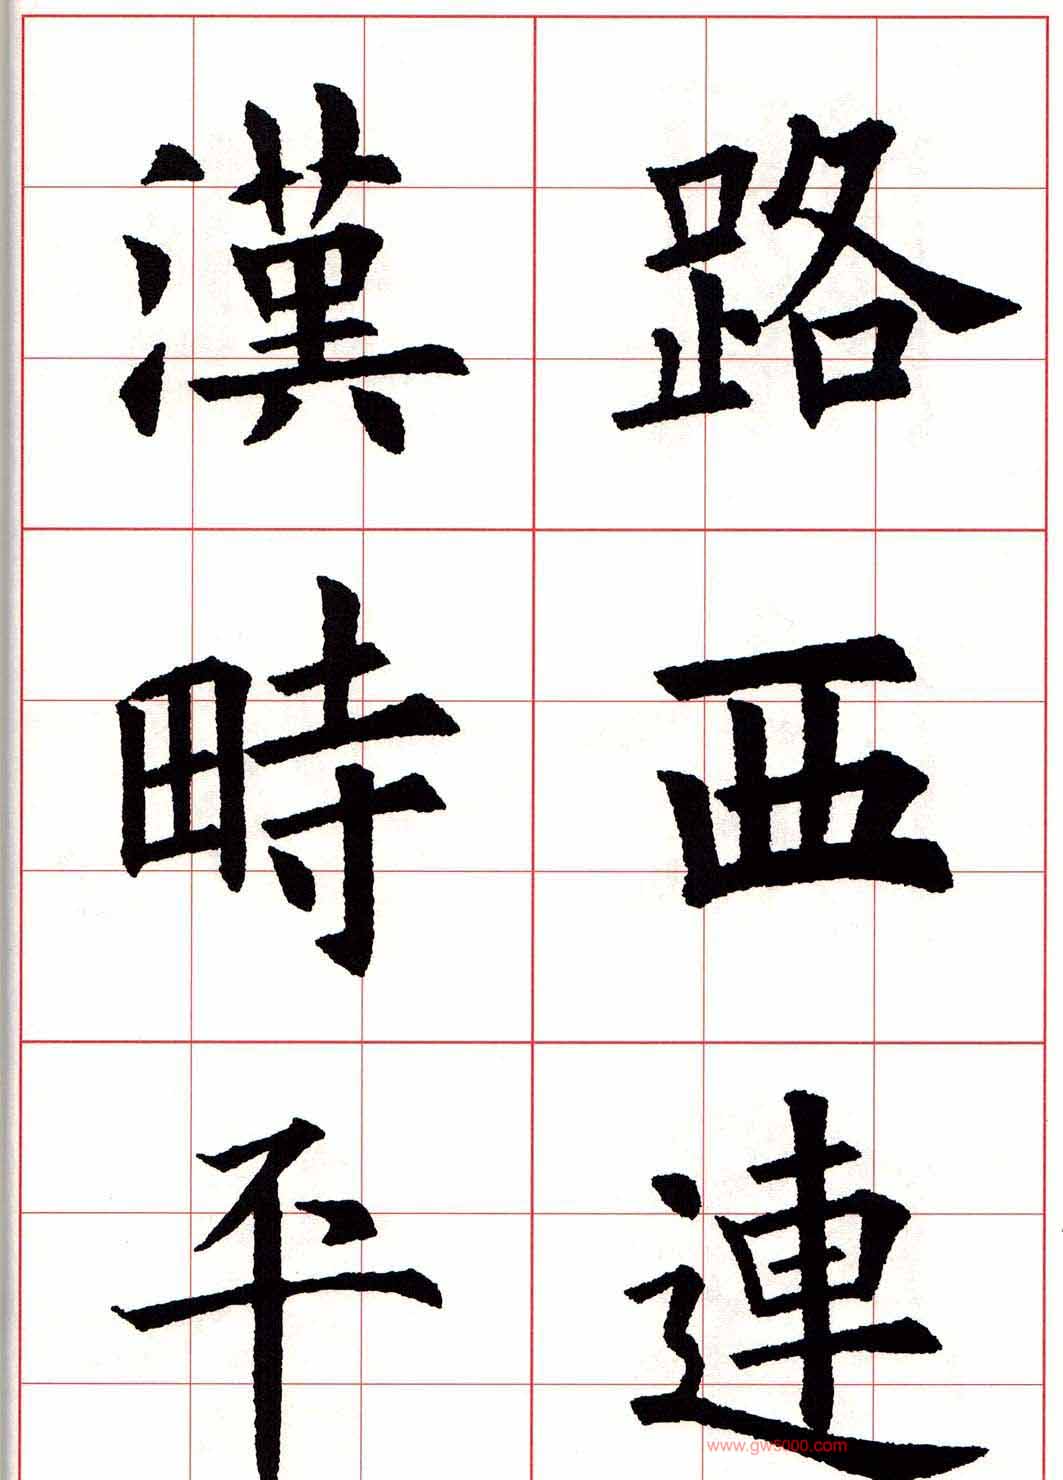 路西連
漢畤平
www.gw5000.com